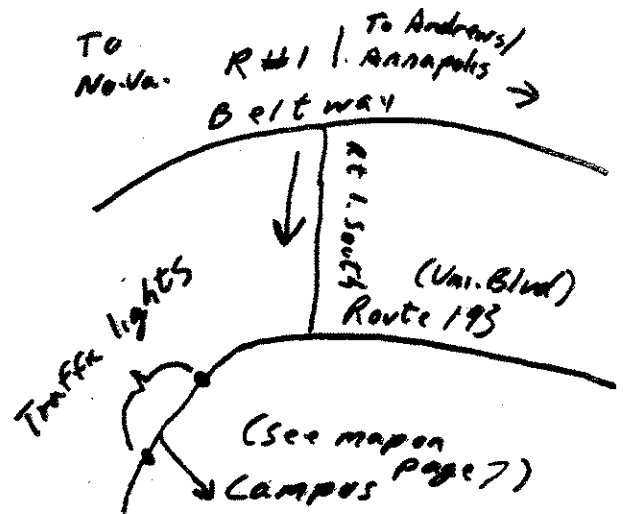 To
No.Va.
R#1
To Andrews/
Annapolis
Beltway
Rt 1. South
(Uni. Blvd)
Route 193
Traffic lights
(See map on
Page 7)
Campus